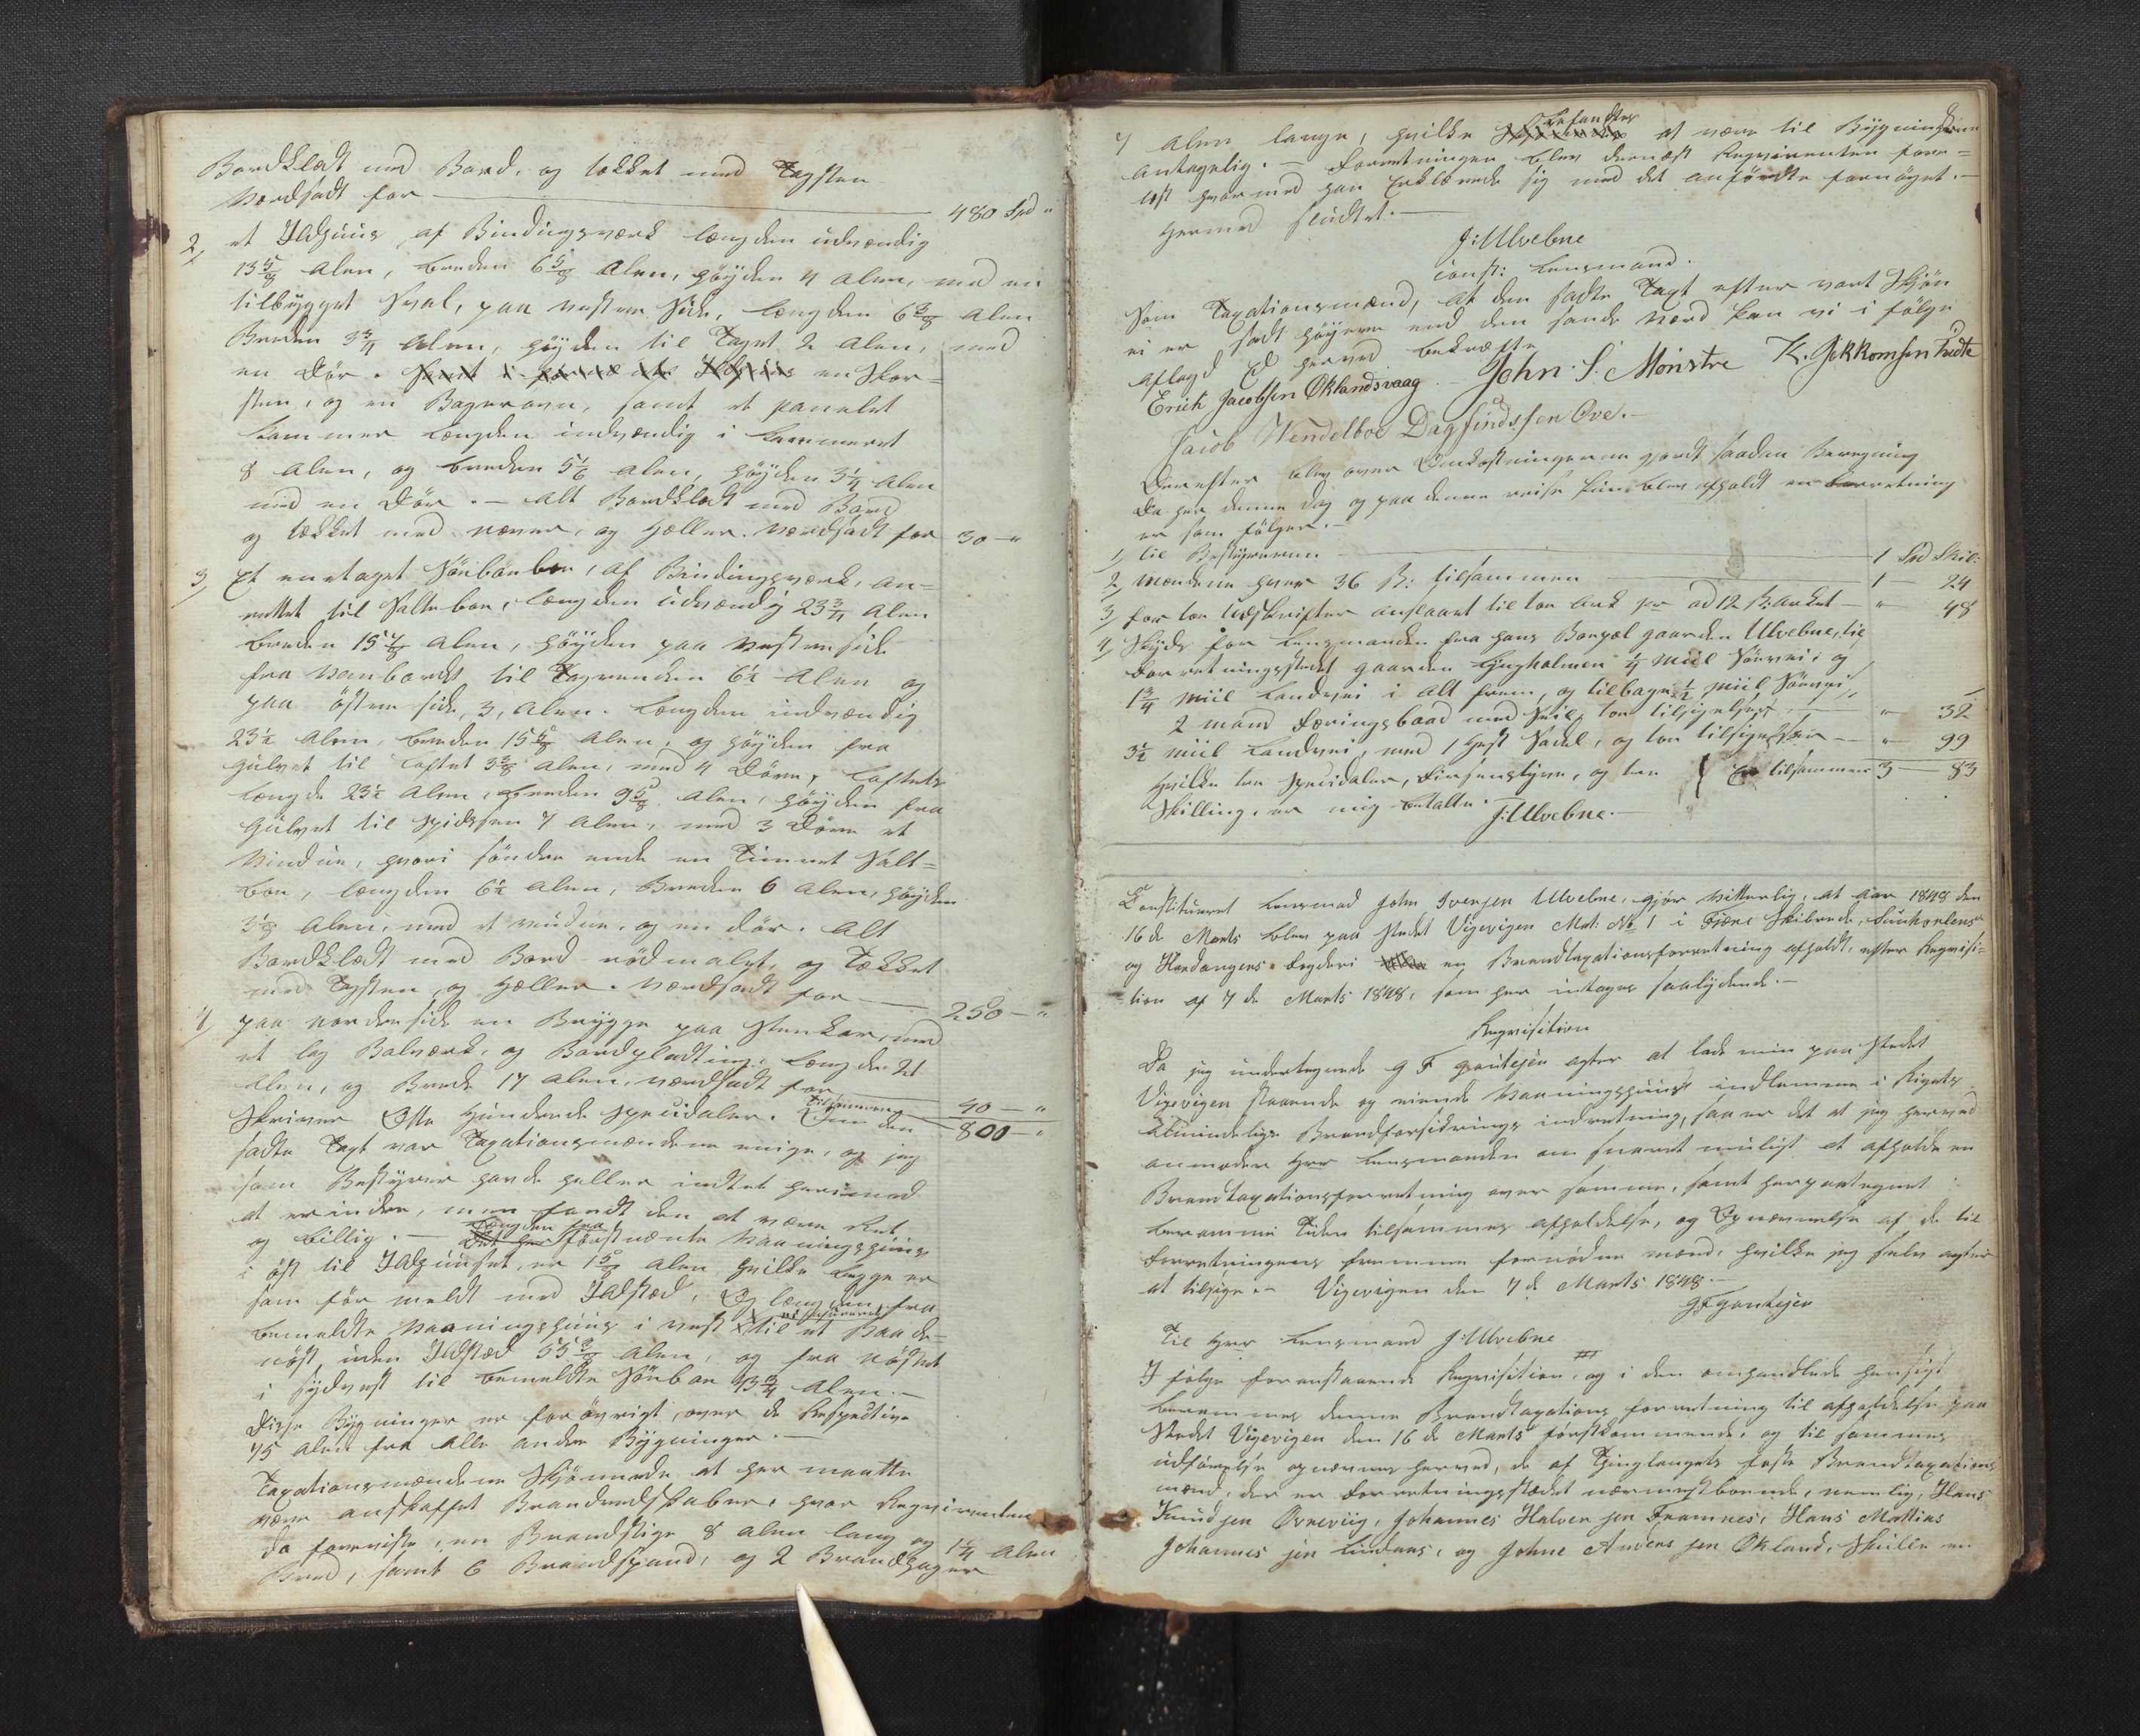 Bordklædt med Bord, og tækket med Tagsten
Værdsadt for — 480 Spd "
2, et Ildhuus af Bindingsværk længden udvændig
13 5/8 Alen, breden 6 5/8 Alen, höyden 4 Alen, med en
tilbygget Sval, paa vestre Side, længden 6 3/8 Alen
Breden 3 3/4 Alen, höyden til Taget 2 Alen, med
en Dör. en Skor-
sten, og en Bagerovn, samt et panelet
kammer længden indvændig i kammeret
8 Alen, og breden 5 1/2 Alen, höyden 3 1/4 Alen
med en Dör. — Alt Bordklædt med Bord
og tækket med næver, og Heller. Værdsadt for 30 - "
3, Et enetaget Söebod, af Bindingsværk, an-
rettet til Salteboe, længden udvændig 23 3/4 Alen
breden 15 7/8 Alen, höyden paa vestre side
fra til Tagrenden 6 1/2 Alen og
paa östre side, 3, Alen. Længden indvændig
23 1/2 Alen, breden 15 5/8 Alen, og höyden fra
gulvet til loftet 3 3/8 Alen, med 4 Döre, Loftets
længde 23 1/2 Alen, breden 9 5/8 Alen, höyden fra
Gulvet til Spidsen 7 Alen, med 3 Döre et
Vindue, hvori söndre ende en Tömret Salt-
boe, længden 6 1/2 Alen, Breden 6 Alen, höyden
3 1/8 Alen, med et vindue, og en dör. Alt
Bordklædt med Bord rödmalet, og Tækket
med Tagsten og Heller. Værdsadt for — 250 — "
4, paa nordre side en Brygge paa Steenkar, med
et lag Bolværk, og Bordpladting. Længden 21
Alen, og Brede 17 Alen, værdsadt for 40 — "
Skriver Otte Hundrede Specidaler. Tilsammen 800 - "
Om den
sadte Taxt var Taxationsmændene enige, og jeg
som Bestyrer havde heller intet herimod
at erindre, men fandt den at være Ret
og billig. — Længden fra förstnænte Vaaningshuus
i öst til Ildhuuset, er 1 5/8 Alen hvilke begge er
som för meldt med Ildsted, Og længden fra
bemeldte Vaaningshuus i vest til et Baade-
nöst, uden Ildsted 55 3/8 Alen, og fra nöstet
i Sydvest til bemeldte Söeboe 43 3/4 Alen. —
Disse Bygninger er forövrigt over de Respective
75 Alen fra Alle andre Bygninger. —
Taxationsmændene Skjönnede at her maatte
være anskaffet Brandredskaber, hvor Reqvirenten
da foreviste, en Brandstige 8 Alen lang og 1 1/4 Alen
Bred, samt 6 Brandspand, og 2 Brandhager
7 Alen lange, hvilke befandtes at være til Bygningerne
antagelig. — Forretningen blev dernæst Reqvirenten fore-
læst hvormed han Erklærede sig med det anfördte fornöyet. —
Hermed sluttet. —
J: Ulvebne
const: Lensmand.
Som Taxationsmænd, at den sadte Taxt efter vort Skjön
ei er sadt höyere end den sande Værd kan vi i fölge
Aflagd Ed herved bekræfte
Erich Jacobsen Öklandsvaag. — John S. Mönstre K. Gjekkomsen Tvedte
Jacob Wendelboe Dagfindssen Ove. —
Derefter blev over Omkostningerne gjordt saadan Beregning
da her denne dag og paa denne reise kun blev afholdt en Forretning
er som fölger. —
1, til Bestyreren — 1 Spd Skil:
2, Mændene hver 36 ß: tilsammen — 1 — 24
3, for to Udskrifter anslaaet til to Ark pr ad 12 ß: Arket — " 48
4, Skyds for Lensmanden fra hans Bopæl gaarden Ulvebne, til
Forretningsstedet gaarden Lyngholmen 1/4 Miil Söevei, og
1 3/4 Miil Landvei i Alt frem, og tilbage 1/2 Miil Söevei
2 mand Færingsbaad med Seil, to tilsigelser — " 32
3 1/2 Miil Landvei, med 1 Hest Sadel, og to tilsigelser — " 99
Hvilke tre Speciedaler, Firsenstyve, og tre } Er tilsammen 3 — 83
Skilling, er mig betalte. J: Ulvebne. —
Constitueret Lensmand John Iversen Ulvebne, gjör vitterlig, at Aar 1848 den
16 de Marts blev paa Stedet Vigevigen Mat: No 1 i Fjære Skibrede, Sundhorlens
og Hardangers Fogderi en Brandtaxationsforretning afholdt, efter Reqvisi-
tion af 7 de Marts 1848, som her intages saalydende. —
Reqvisition
Da jeg undertegnede G F Gontesen agter at lade min paa Stedet
Vigevigen staaende og eiende Vaaningshuus indlemme i Rigets
Almindelige Brandforsikrings indretning, saa er det at jeg herved
anmoder Herr Lensmanden om snarest muligt at afholde en
Brandtaxationsforretning over samme, samt herpaategnet
beramme Tiden til sammes afholdelse, og Opnævnelse af de til
Forretningens fremme fornödne mænd, hvilke jeg selv agter
at tilsige. — Vigevigen den 7 de Marts 1848. —
G F Gontesen
Til Herr Lensmand J: Ulvebne
I fölge foranstaaende Reqvisition, og i den omhandlede hensigt
berammes denne Brandtaxations forretning til afholdelse paa
Stedet Vigevigen den 16 de Marts förstkommende, og til sammes
udförelse opnævnes herved, de af Thinglaugets faste Brandtaxations
mænd, der er Forretningsstedet nærmest boende, nemlig, Hans
Knudsen Övreviig, Johannes Halversen Framnes, Hans Mathias
Johannesen Lindaas, og Johne Andersen Ökland. Skulle en